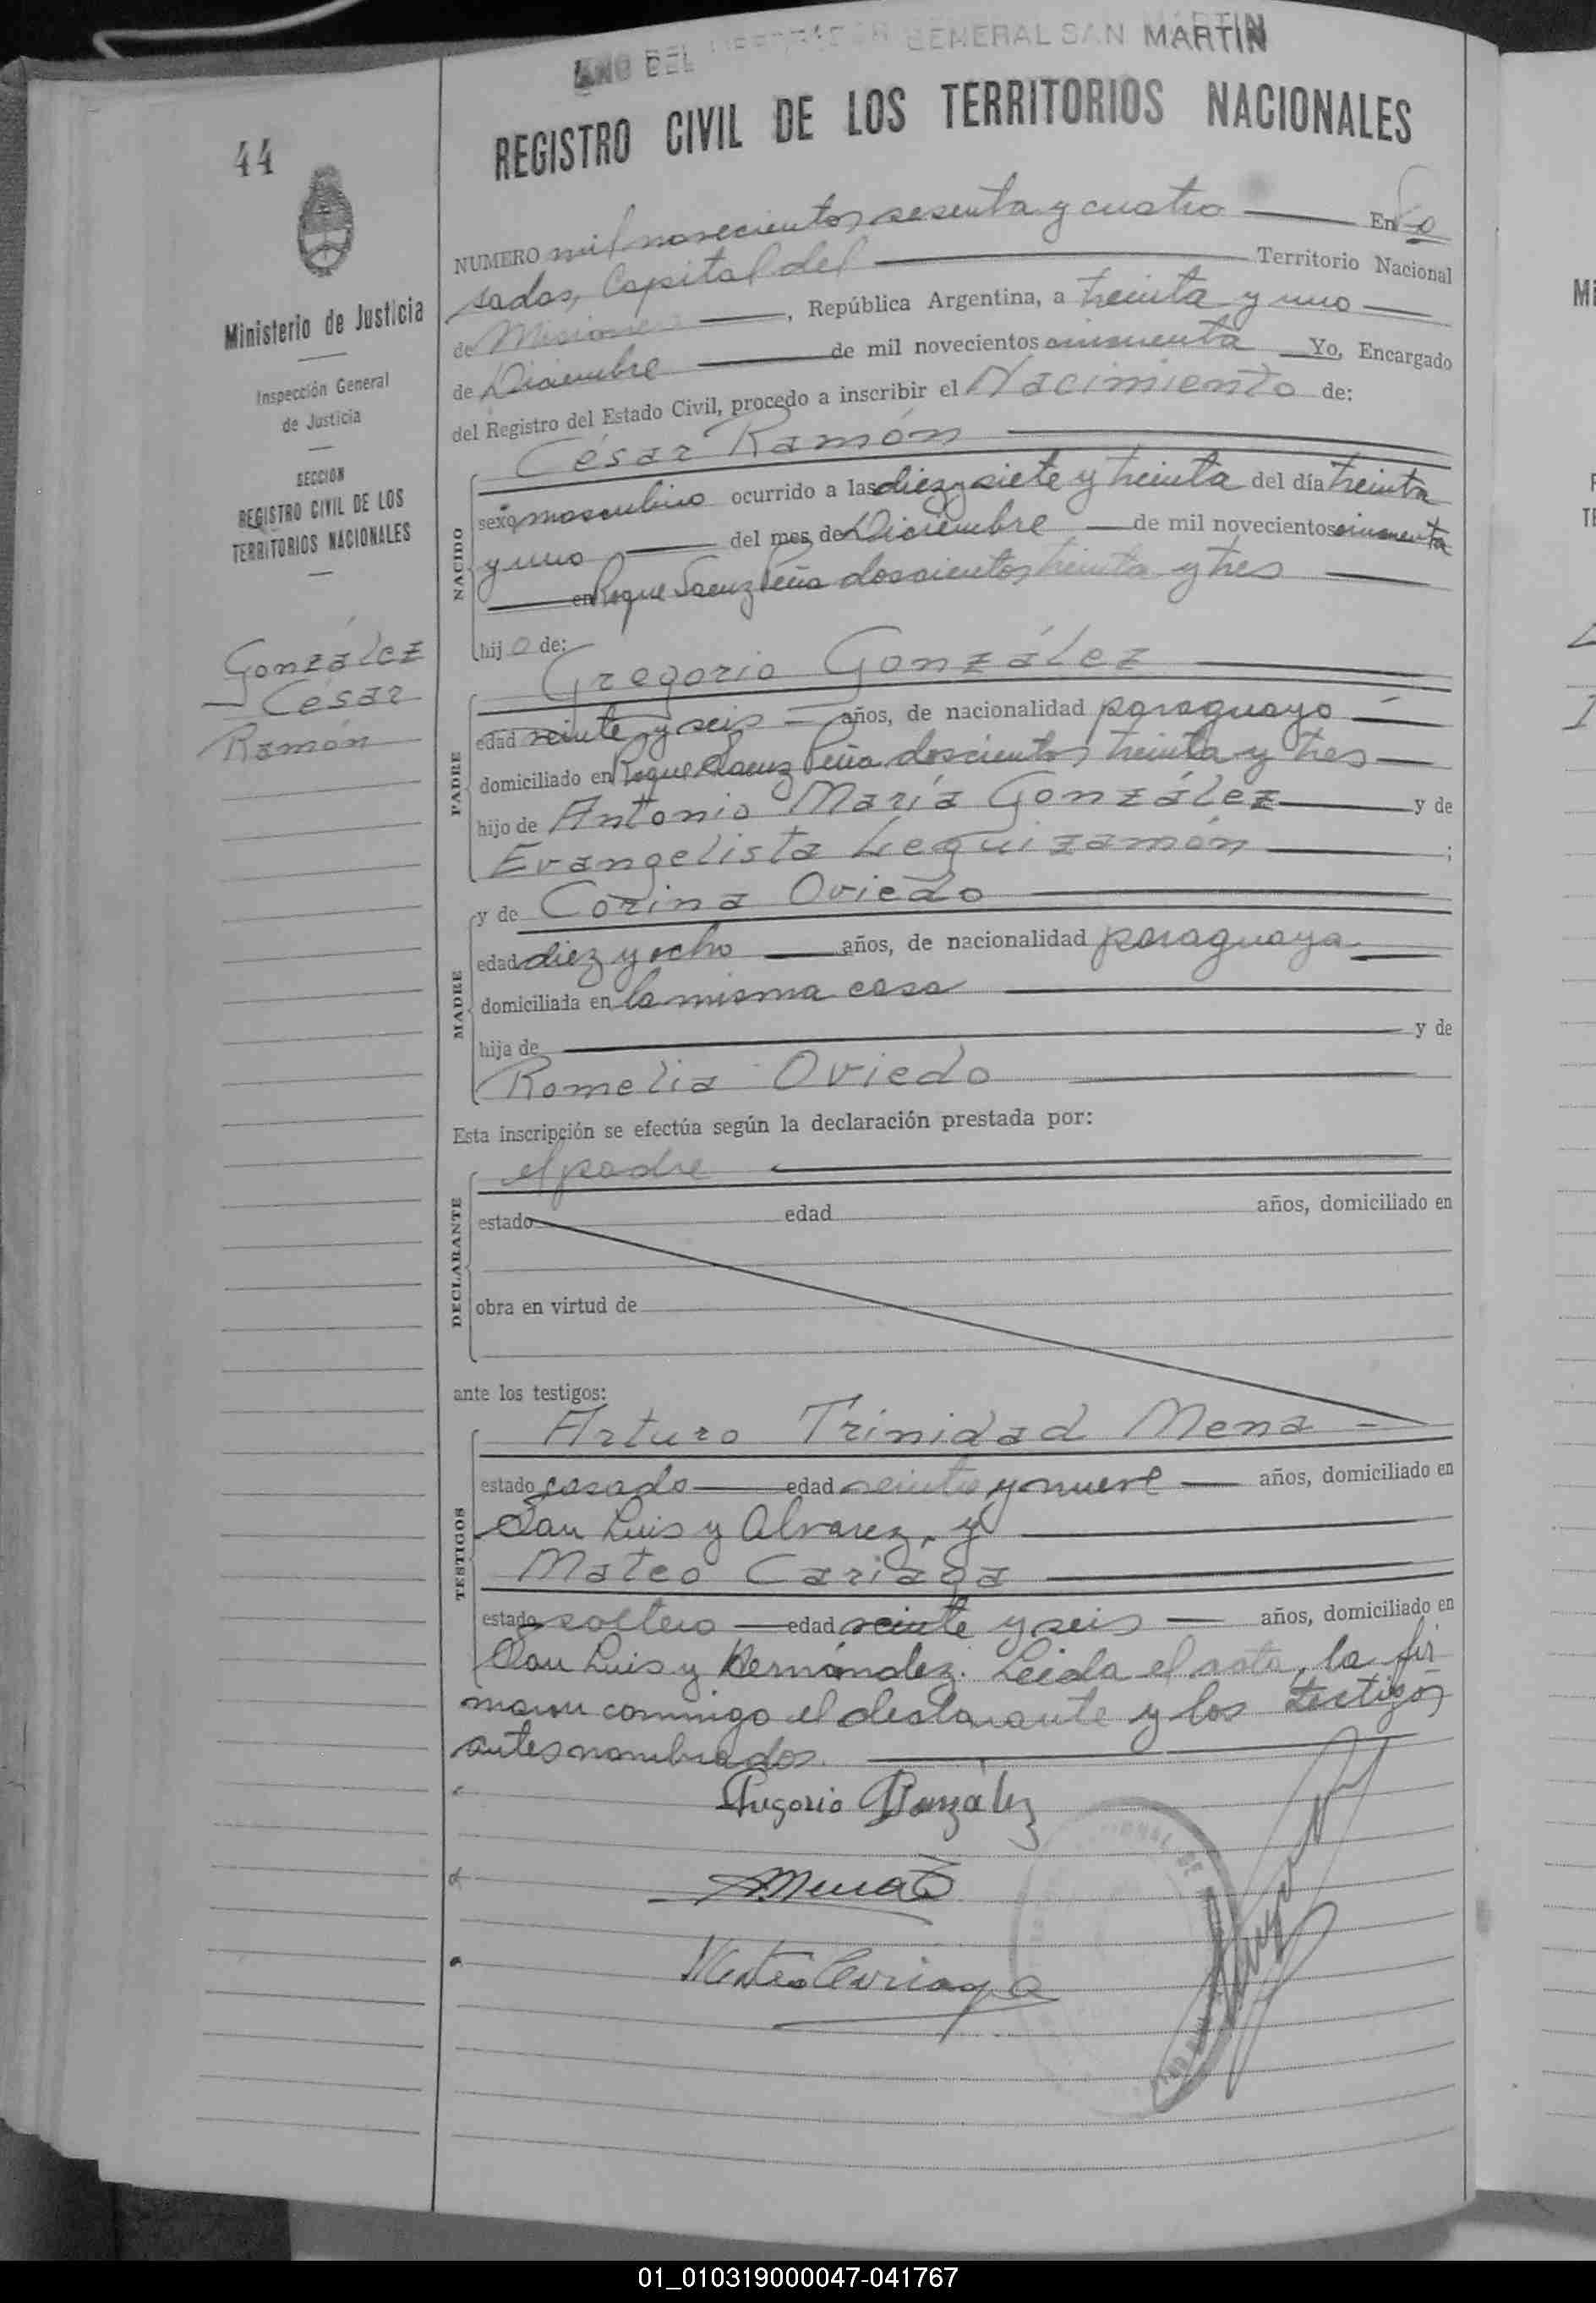 AÑO DEL LIBERTADOR GENERAL SAN MARTIN
REGISTRO CIVIL DE LOS TERRITORIOS NACIONALES
44
Ministerio de Justicia
Inspección General
de Justicia
SECCION
REGISTRO CIVIL DE LOS
TERRITORIOS NACIONALES
González
César
Ramón
NUMERO mil novecientos sesenta y cuatro En Po
sadas, Capital del Territorio Nacional
de Misiones, República Argentina, a treinta y uno
de Diciembre de mil novecientos cincuenta Yo, Encargado
del Registro del Estado Civil, procedo a inscribir el Nacimiento de:
César Ramón
NACIDO
sexo masculino ocurrido a las diez y siete y treinta del día treinta
y uno del mes de Diciembre de mil novecientos cincuenta
en Roque Saenz Peña doscientos treinta y tres
hijo de:
Gregorio González
PADRE
edad veinte y seis años, de nacionalidad paraguayo
domiciliado en Roque Saenz Peña doscientos treinta y tres
hijo de Antonio María González y de
Evangelista Leguizamón ;
y de Corina Oviedo
MADRE
edad diez y ocho años, de nacionalidad paraguaya
domiciliada en la misma casa
hija de y de
Romelia Oviedo
Esta inscripción se efectúa según la declaración prestada por:
el padre
DECLARANTE
estado edad años, domiciliado en
obra en virtud de
ante los testigos:
Arturo Trinidad Mena
TESTIGOS
estado casado edad veinte y nueve años, domiciliado en
San Luis y Alvarez, y
Mateo Cariaga
estado soltero edad veinte y seis años, domiciliado en
San Luis y Hernández. Leida el acta, la fir
maron conmigo el declarante y los testigos
antes nombrados.
Gregorio González
AMena
Mateo Cariaga
01_010319000047-041767